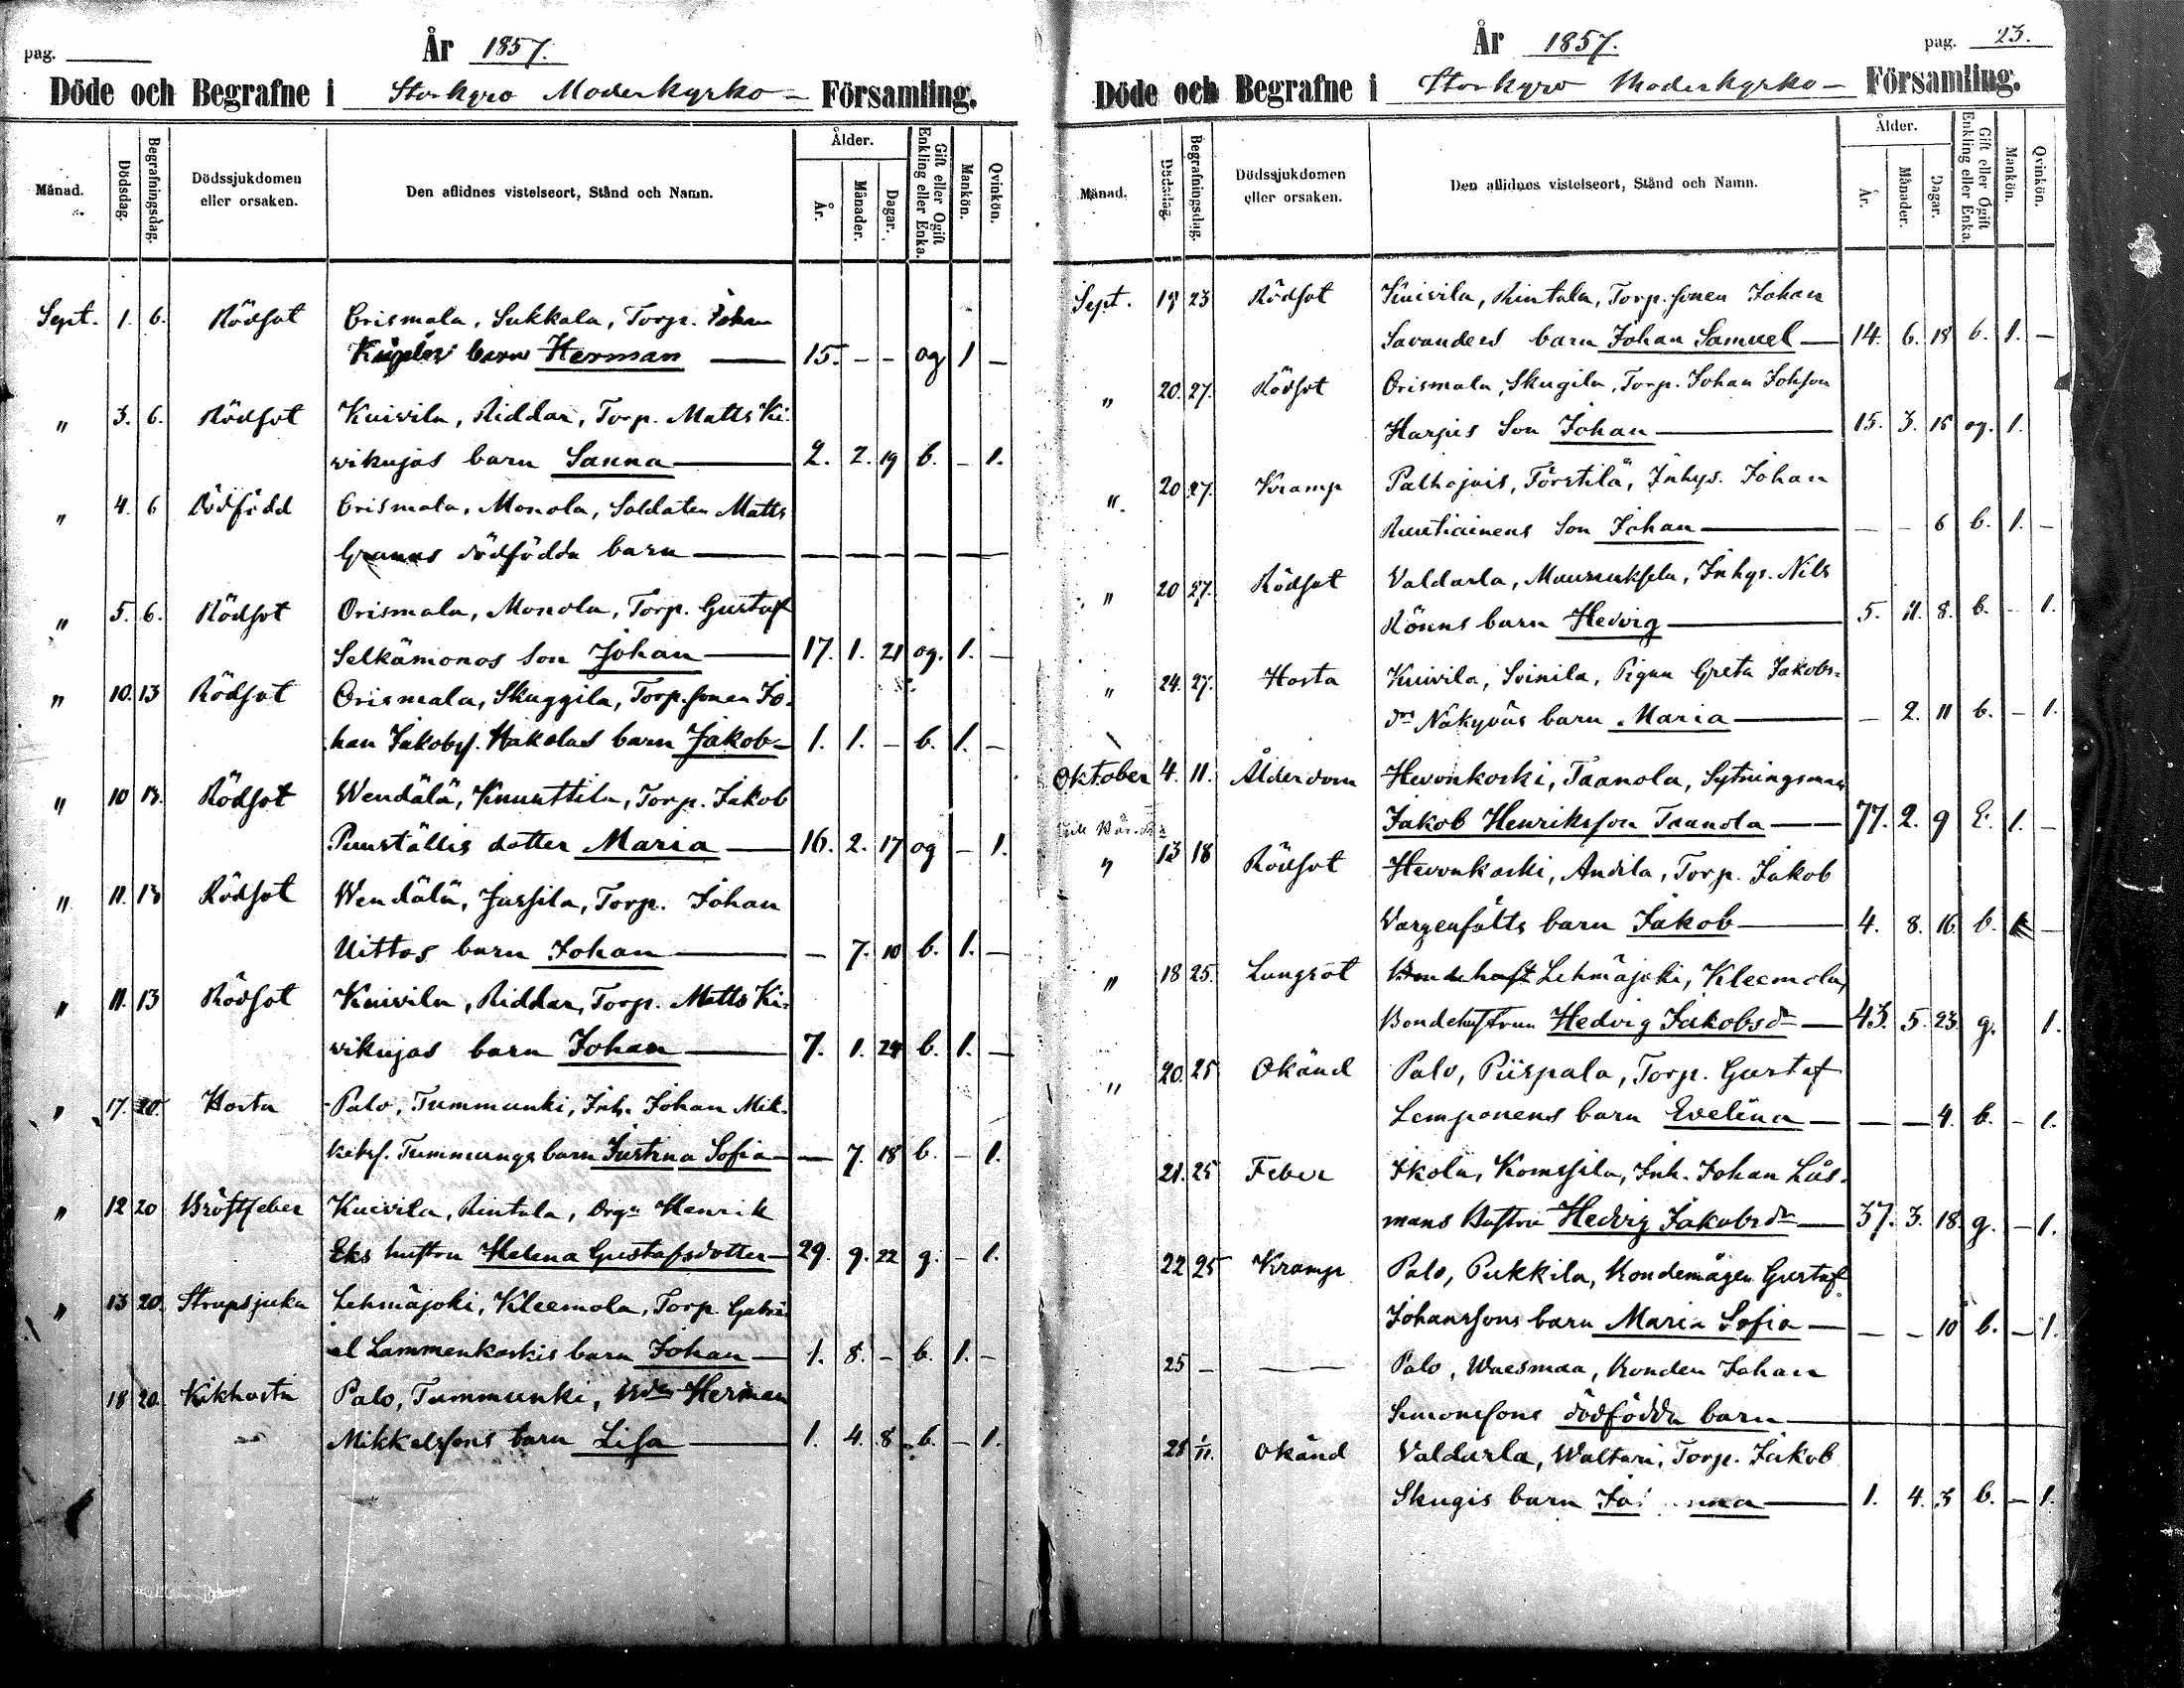 pag.
År 1857.
Döde och Begrafne i Storkyro Moderkyrko- Församling.
Månad. Dödsdag. Begrafningsdag. Dödssjukdomen eller orsaken. Den aflidnes vistelseort, Stånd och Namn. Ålder. År. Månader. Dagar. Gift eller Ogift Enkling eller Enka. Mankön. Qvinkön.
Sept. 1. 6. Rödsot Orismala, Sukkala, Torp. Johan
barn Herman — 15. - - og 1 -
" 3. 6. Rödsot Kuivila, Riddar, Torp. Matts Ki-
vikujas barn Sanna — 2. 2. 19 b. - 1.
" 4. 6 Dödfödd Orismala, Monola, Soldaten Matts
Granas dödfödda barn — — — — — —
" 5. 6. Rödsot Orismala, Monola, Torp. Gustaf
Selkämonos Son Johan — 17. 1. 21 og. 1. -
" 10. 13 Rödsot Orismala, Skuggila, Torp.sonen Jo-
han Jakobss. Hakolas barn Jakob — 1. 1. - b. 1. -
" 10 13. Rödsot Wendälä, Knuuttila, Torp. Jakob
Punställis dotter Maria — 16. 2. 17 og - 1.
" 11. 13 Rödsot Wendälä, Jussila, Torp. Johan
Uittos barn Johan — - 7. 10 b. 1. -
" 11. 13 Rödsot Kuivila, Riddar, Torp. Matts Ki-
vikujas barn Johan — 7. 1. 24 b. 1. -
" 17. 20. Hosta Palo, Tummunki, Inh. Johan Mik-
kelss. Tummungs barn Justina Sofia — — 7. 18 b. - 1.
" 12 20 Bröstfeber Kuivila, Rintala, Drgn Henrik
Eks hustru Helena Gustafsdotter — 29. 9. 22 g. - 1.
" 13 20. Strupsjuka Lehmäjoki, Kleemola, Torp. Gabri-
el Lammenkoskis barn Johan — 1. 8. - b. 1. -
18 20. Kikhosta Palo, Tummunki, Herman
Mikkelssons barn Lisa — 1. 4. 8 b. - 1.
År 1857.
pag. 23.
Döde och Begrafne i Storkyro Moderkyrko- Församling.
Månad. Dödsdag. Begrafningsdag. Dödssjukdomen eller orsaken. Den aflidnes vistelseort, Stånd och Namn. Ålder. År. Månader. Dagar. Gift eller Ogift Enkling eller Enka. Mankön. Qvinkön.
Sept. 19 23 Rödsot Kuivila, Rintala, Torp.sonen Johan
Savanders barn Johan Samuel — 14. 6. 18 b. 1. -
" 20. 27. Rödsot Orismala, Skugila, Torp. Johan Johsson
Harjus Son Johan — 15. 3. 18 og. 1.
" 20 27. Kramp Palhojais, Förstilä, Inhys. Johan
Ruutiainens Son Johan — - - 6 b. 1. -
" 20 27. Rödsot Valdarla, Maunuksela, Inhys. Nils
Rönns barn Hedvig — 5. 11. 8. b. - 1.
" 24. 27. Hosta Kuivila, Soinila, Pigan Greta Jakobs-
dr Näkyväs barn Maria — - 2. 11 b. - 1.
Oktober 4. 11. Ålderdom Hevonkoski, Taanola, Sytningsman
Jakob Henriksson Taanola — 77. 2. 9 E. 1. -
" 13 18 Rödsot Hevonkoski, Andila, Torp. Jakob
Vargenfälts barn Jakob — 4. 8. 16 b. 1 -
" 18 25. Lungsot Bondehust Lehmäjoki, Kleemola,
Bondehustrun Hedvig Jakobsdr — 43. 5. 23. g. 1.
" 20. 25 Okänd Palo, Piispala, Torp. Gustaf
Lemponens barn Evelina — — — 4. b. - 1.
21. 25 Feber Ikola, Komssila, Inh. Johan Lås-
mans Hustru Hedvig Jakobsdr — 37. 3. 18 g. - 1.
22 25 Kramp Palo, Pukkila, Bondemågen Gustaf
Johanssons barn Maria Sofia — - - 10 b. - 1.
25 - — Palo, Waesmaa, Bonden Johan
Simonssons dödfödda barn —
28 1/11. Okänd Valdarla, Waltari, Torp. Jakob
Skugis barn — 1. 4. 3 b. - 1.